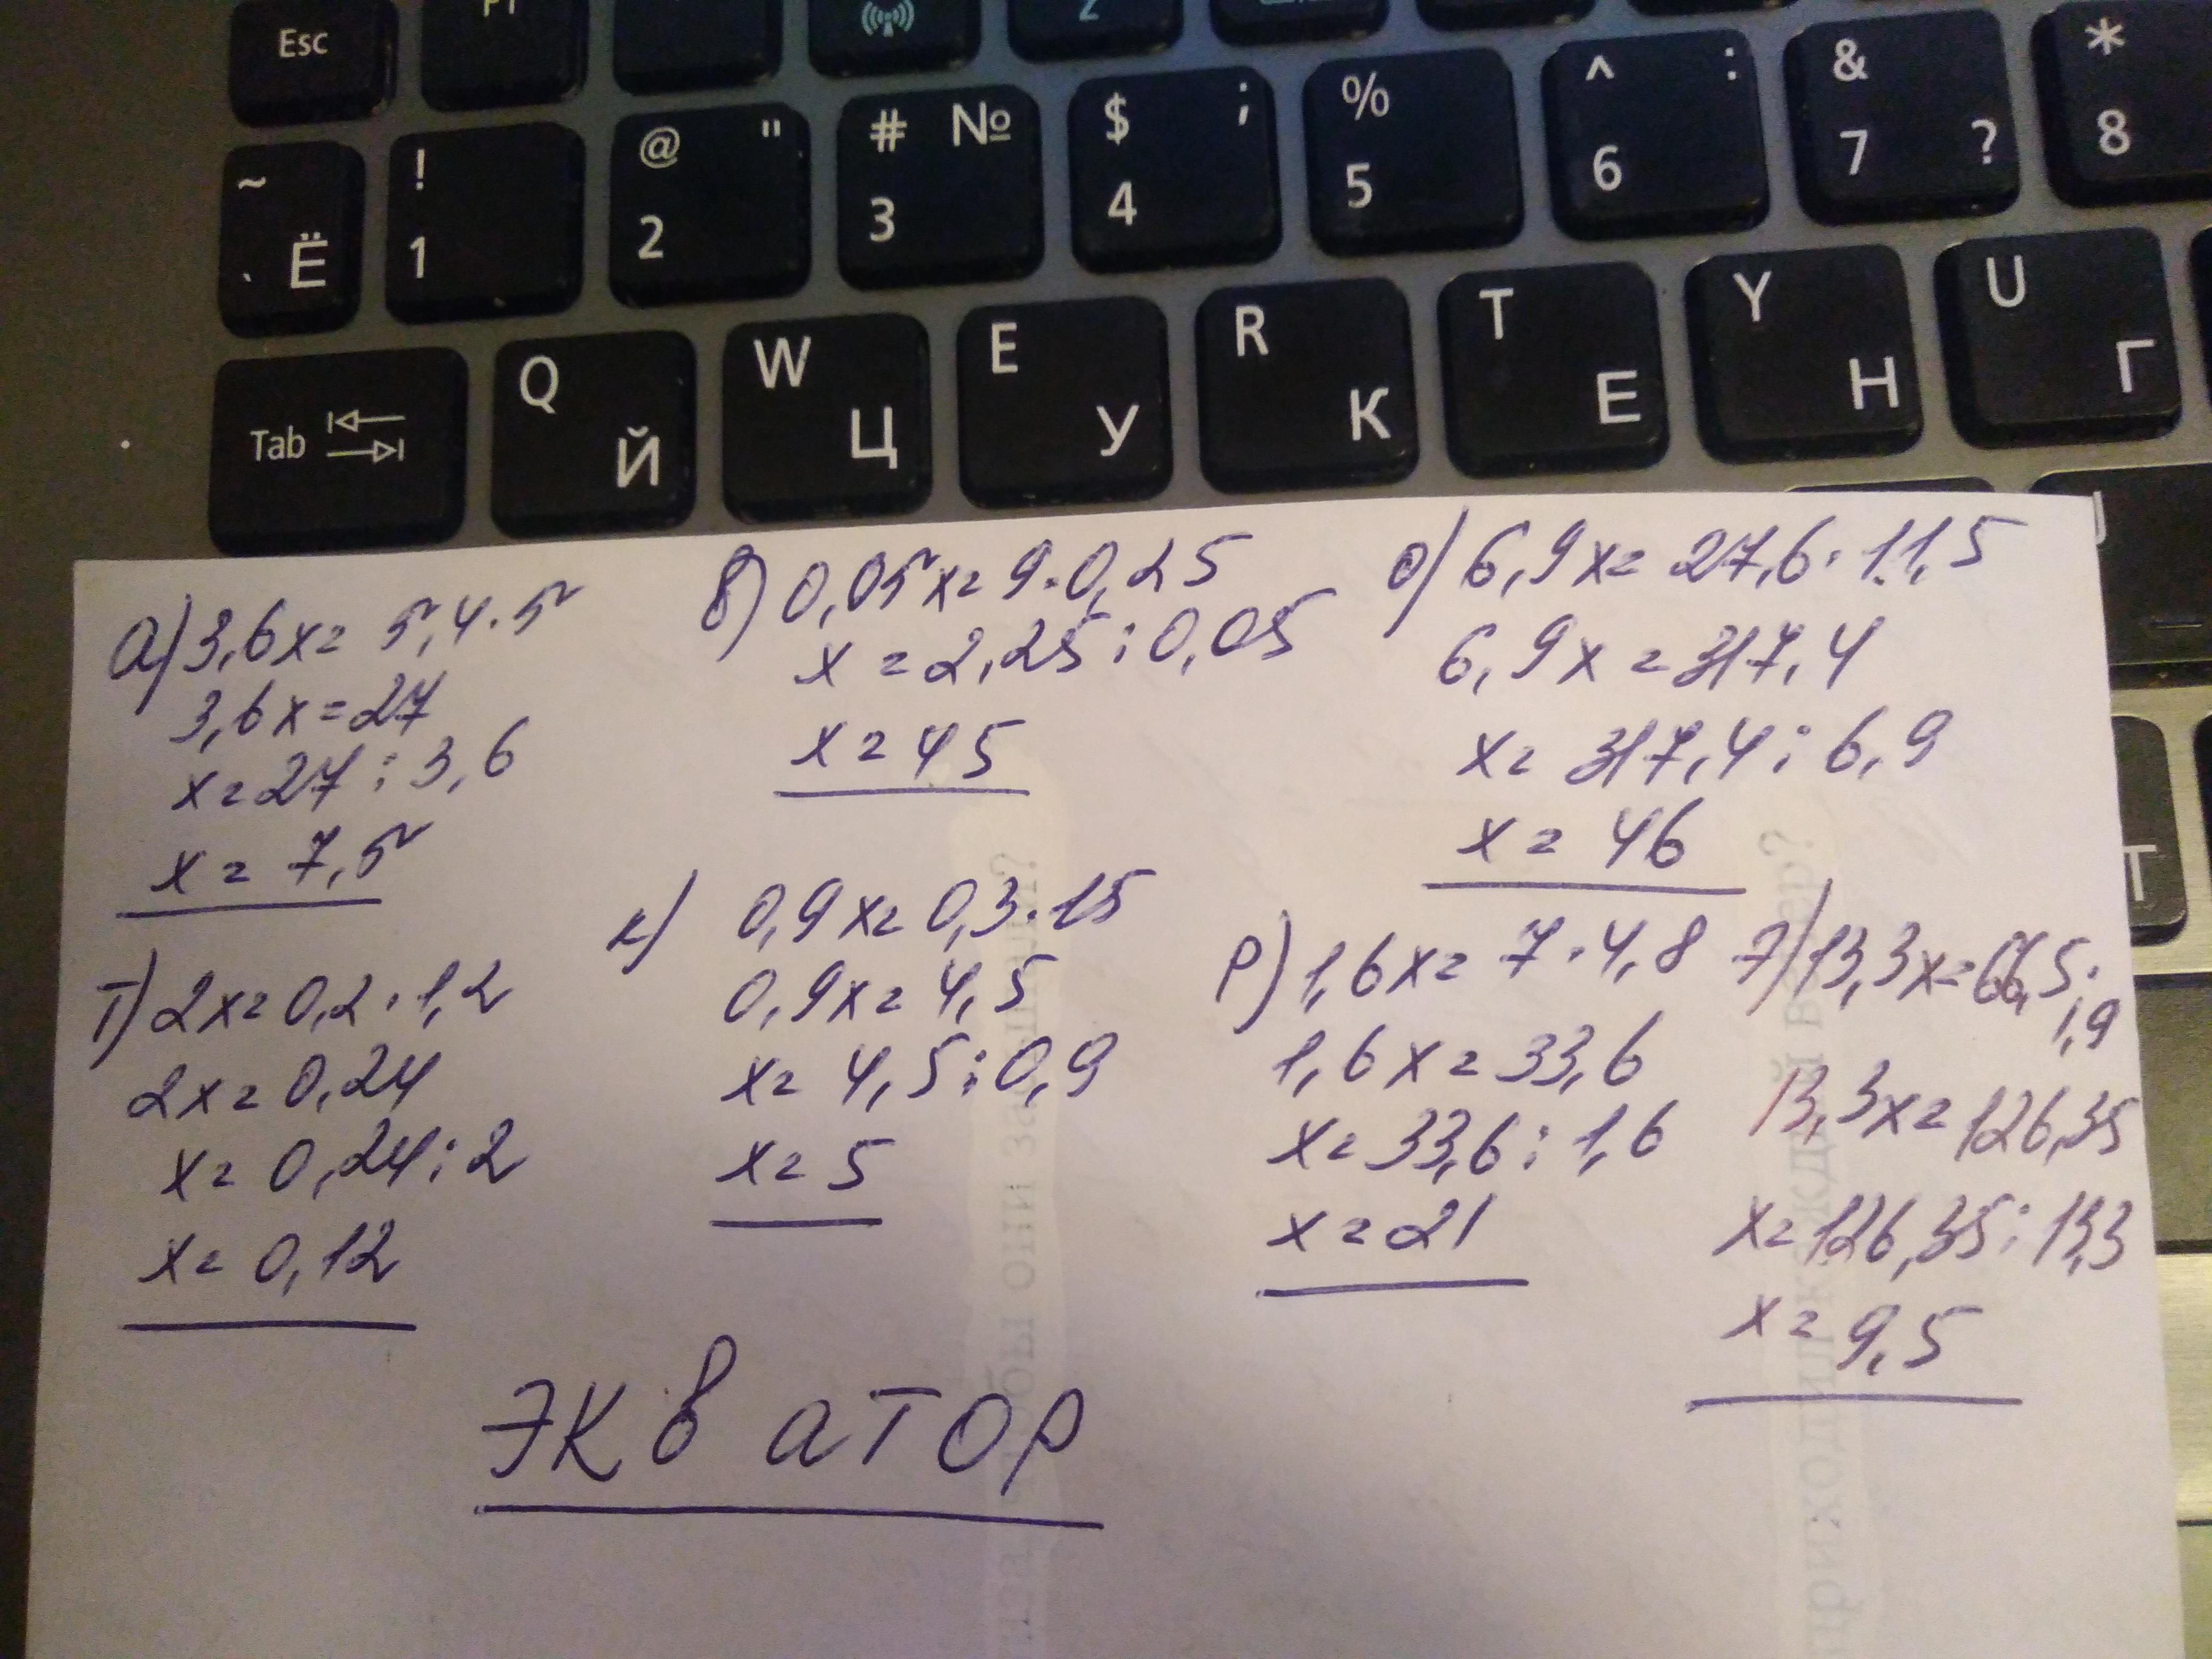 Esc F1 2
~ Ё ! 1 @ " 2 # № 3 $ ; 4 % 5 ^ : 6 & 7 ? * 8
Tab Q Й W Ц E У R К T Е Y Н U Г
а) 3,6x = 5,4 · 5
3,6x = 27
x = 27 : 3,6
x = 7,5
в) 0,05x = 9 · 0,25
x = 2,25 : 0,05
x = 45
о) 6,9x = 27,6 · 11,5
6,9x = 317,4
x = 317,4 : 6,9
x = 46
т) 2x = 0,2 · 1,2
2x = 0,24
x = 0,24 : 2
x = 0,12
к) 0,9x = 0,3 · 15
0,9x = 4,5
x = 4,5 : 0,9
x = 5
р) 1,6x = 7 · 4,8
1,6x = 33,6
x = 33,6 : 1,6
x = 21
э) 13,3x = 66,5 ·
1,9
13,3x = 126,35
x = 126,35 : 13,3
x = 9,5
экватор